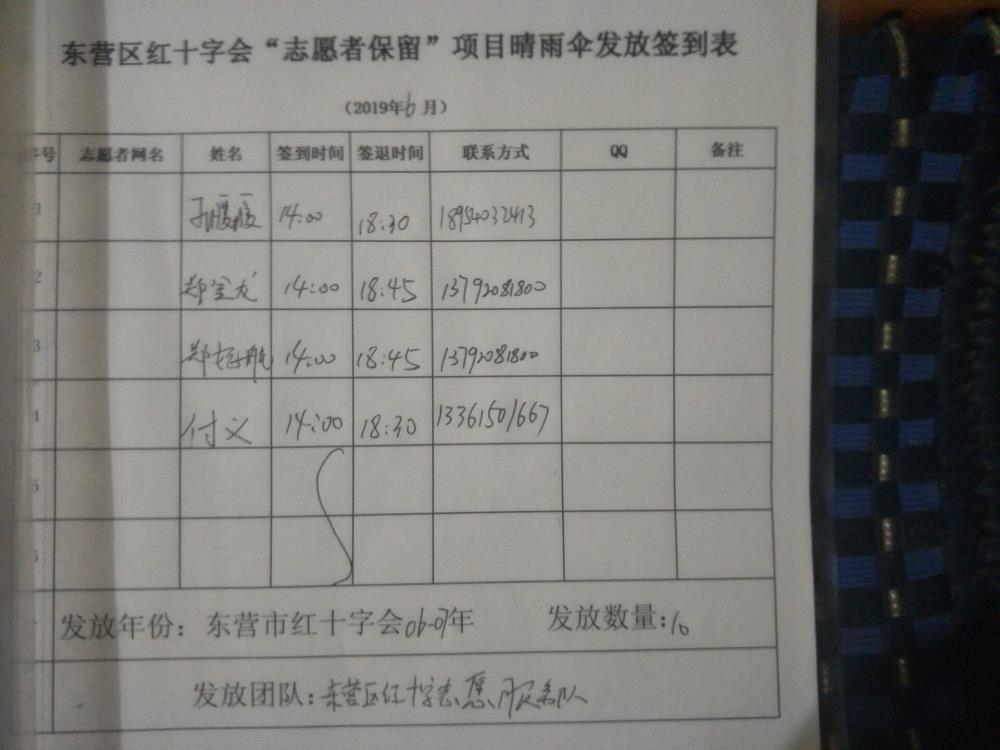 东营区红十字会“志愿者保留”项目晴雨伞发放签到表
（2019年6月）
序号 志愿者网名 姓名 签到时间 签退时间 联系方式 QQ 备注
1 14:00 18:30 18954032413
2 郑宝龙 14:00 18:45 13792081800
3 14:00 18:45 13792081800
4 付义 14:00 18:30 13361501667
5
6
发放年份：东营市红十字会06-07年 发放数量:10
发放团队:东营区红十字志愿服务队